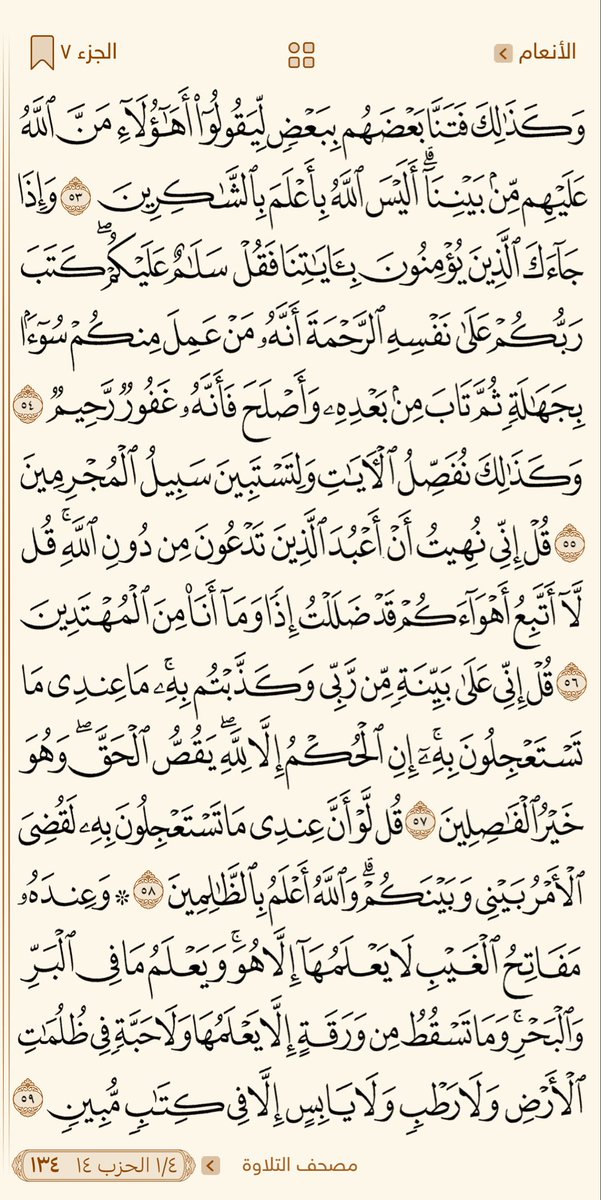 الأنعام
الجزء ٧
وَكَذَٰلِكَ فَتَنَّا بَعْضَهُم بِبَعْضٍ لِّيَقُولُوٓا۟ أَهَٰٓؤُلَآءِ مَنَّ ٱللَّهُ
عَلَيْهِم مِّنۢ بَيْنِنَآ ۗ أَلَيْسَ ٱللَّهُ بِأَعْلَمَ بِٱلشَّٰكِرِينَ ٥٣ وَإِذَا
جَآءَكَ ٱلَّذِينَ يُؤْمِنُونَ بِـَٔايَٰتِنَا فَقُلْ سَلَٰمٌ عَلَيْكُمْ ۖ كَتَبَ
رَبُّكُمْ عَلَىٰ نَفْسِهِ ٱلرَّحْمَةَ أَنَّهُۥ مَنْ عَمِلَ مِنكُمْ سُوٓءًۢا
بِجَهَٰلَةٍ ثُمَّ تَابَ مِنۢ بَعْدِهِۦ وَأَصْلَحَ فَأَنَّهُۥ غَفُورٌ رَّحِيمٌ ٥٤
وَكَذَٰلِكَ نُفَصِّلُ ٱلْـَٔايَٰتِ وَلِتَسْتَبِينَ سَبِيلُ ٱلْمُجْرِمِينَ
٥٥ قُلْ إِنِّى نُهِيتُ أَنْ أَعْبُدَ ٱلَّذِينَ تَدْعُونَ مِن دُونِ ٱللَّهِ ۚ قُل
لَّآ أَتَّبِعُ أَهْوَآءَكُمْ قَدْ ضَلَلْتُ إِذًا وَمَآ أَنَا۠ مِنَ ٱلْمُهْتَدِينَ
٥٦ قُلْ إِنِّى عَلَىٰ بَيِّنَةٍ مِّن رَّبِّى وَكَذَّبْتُم بِهِۦ ۚ مَا عِندِى مَا
تَسْتَعْجِلُونَ بِهِۦٓ ۚ إِنِ ٱلْحُكْمُ إِلَّا لِلَّهِ ۖ يَقُصُّ ٱلْحَقَّ ۖ وَهُوَ
خَيْرُ ٱلْفَٰصِلِينَ ٥٧ قُل لَّوْ أَنَّ عِندِى مَا تَسْتَعْجِلُونَ بِهِۦ لَقُضِىَ
ٱلْأَمْرُ بَيْنِى وَبَيْنَكُمْ ۗ وَٱللَّهُ أَعْلَمُ بِٱلظَّٰلِمِينَ ٥٨ ۞ وَعِندَهُۥ
مَفَاتِحُ ٱلْغَيْبِ لَا يَعْلَمُهَآ إِلَّا هُوَ ۚ وَيَعْلَمُ مَا فِى ٱلْبَرِّ
وَٱلْبَحْرِ ۚ وَمَا تَسْقُطُ مِن وَرَقَةٍ إِلَّا يَعْلَمُهَا وَلَا حَبَّةٍ فِى ظُلُمَٰتِ
ٱلْأَرْضِ وَلَا رَطْبٍ وَلَا يَابِسٍ إِلَّا فِى كِتَٰبٍ مُّبِينٍ ٥٩
مصحف التلاوة
١/٤ الحزب ١٤
١٣٤